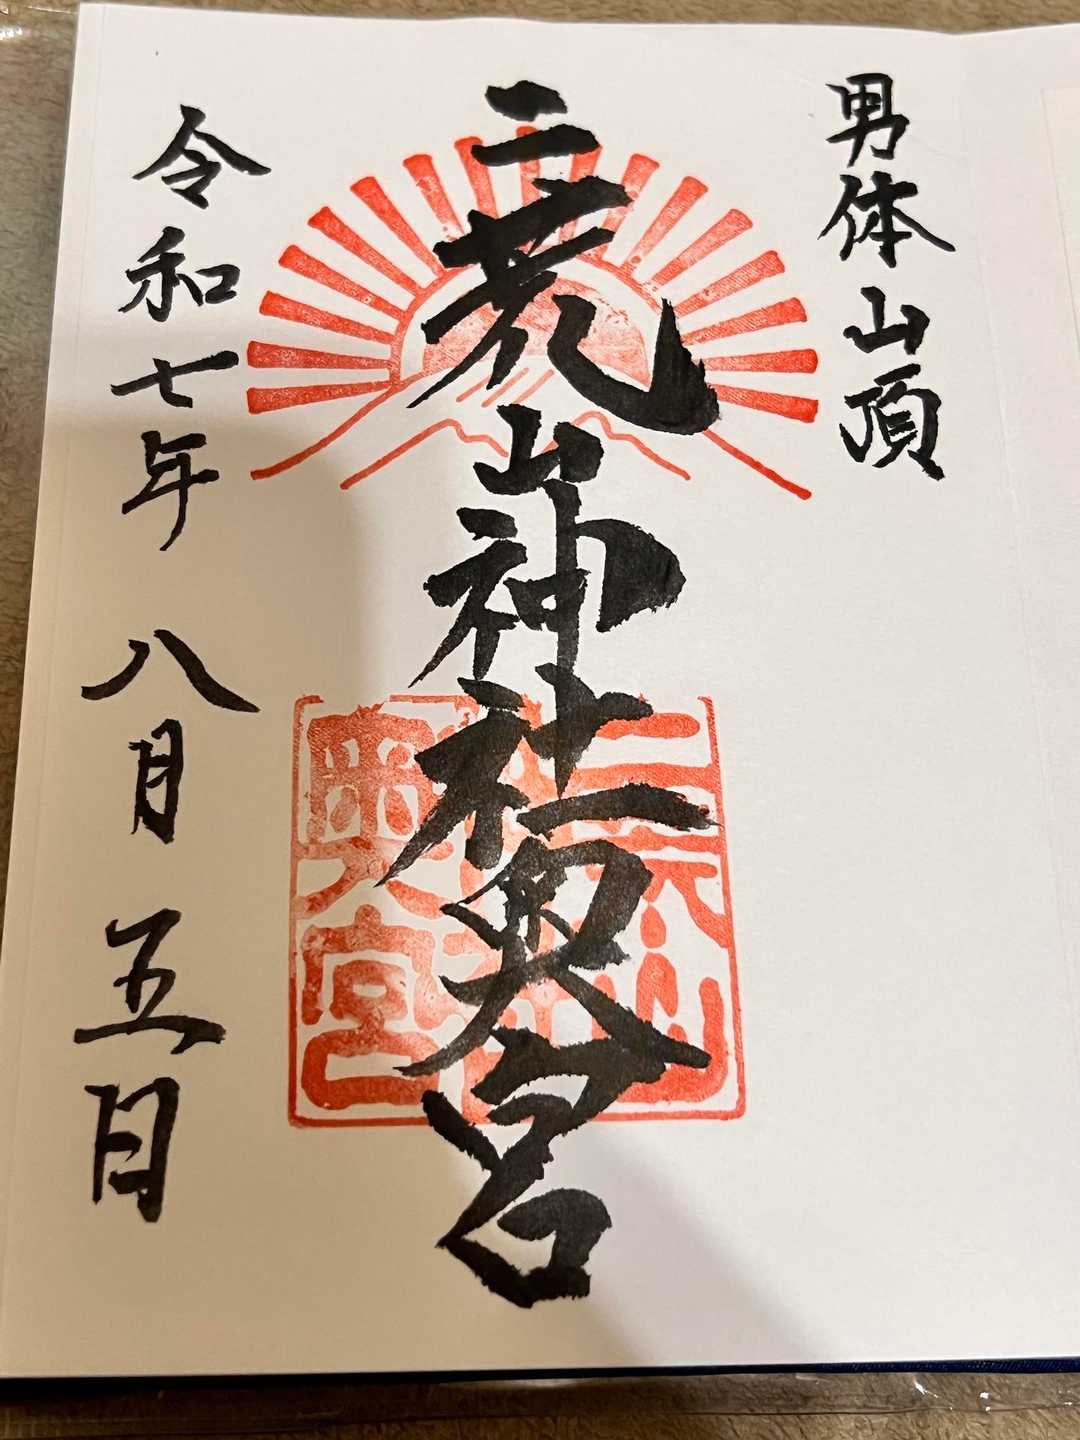 男体山頂
二荒山神社奥宮
二荒山
神社
奥宮
令和七年 八月 五日